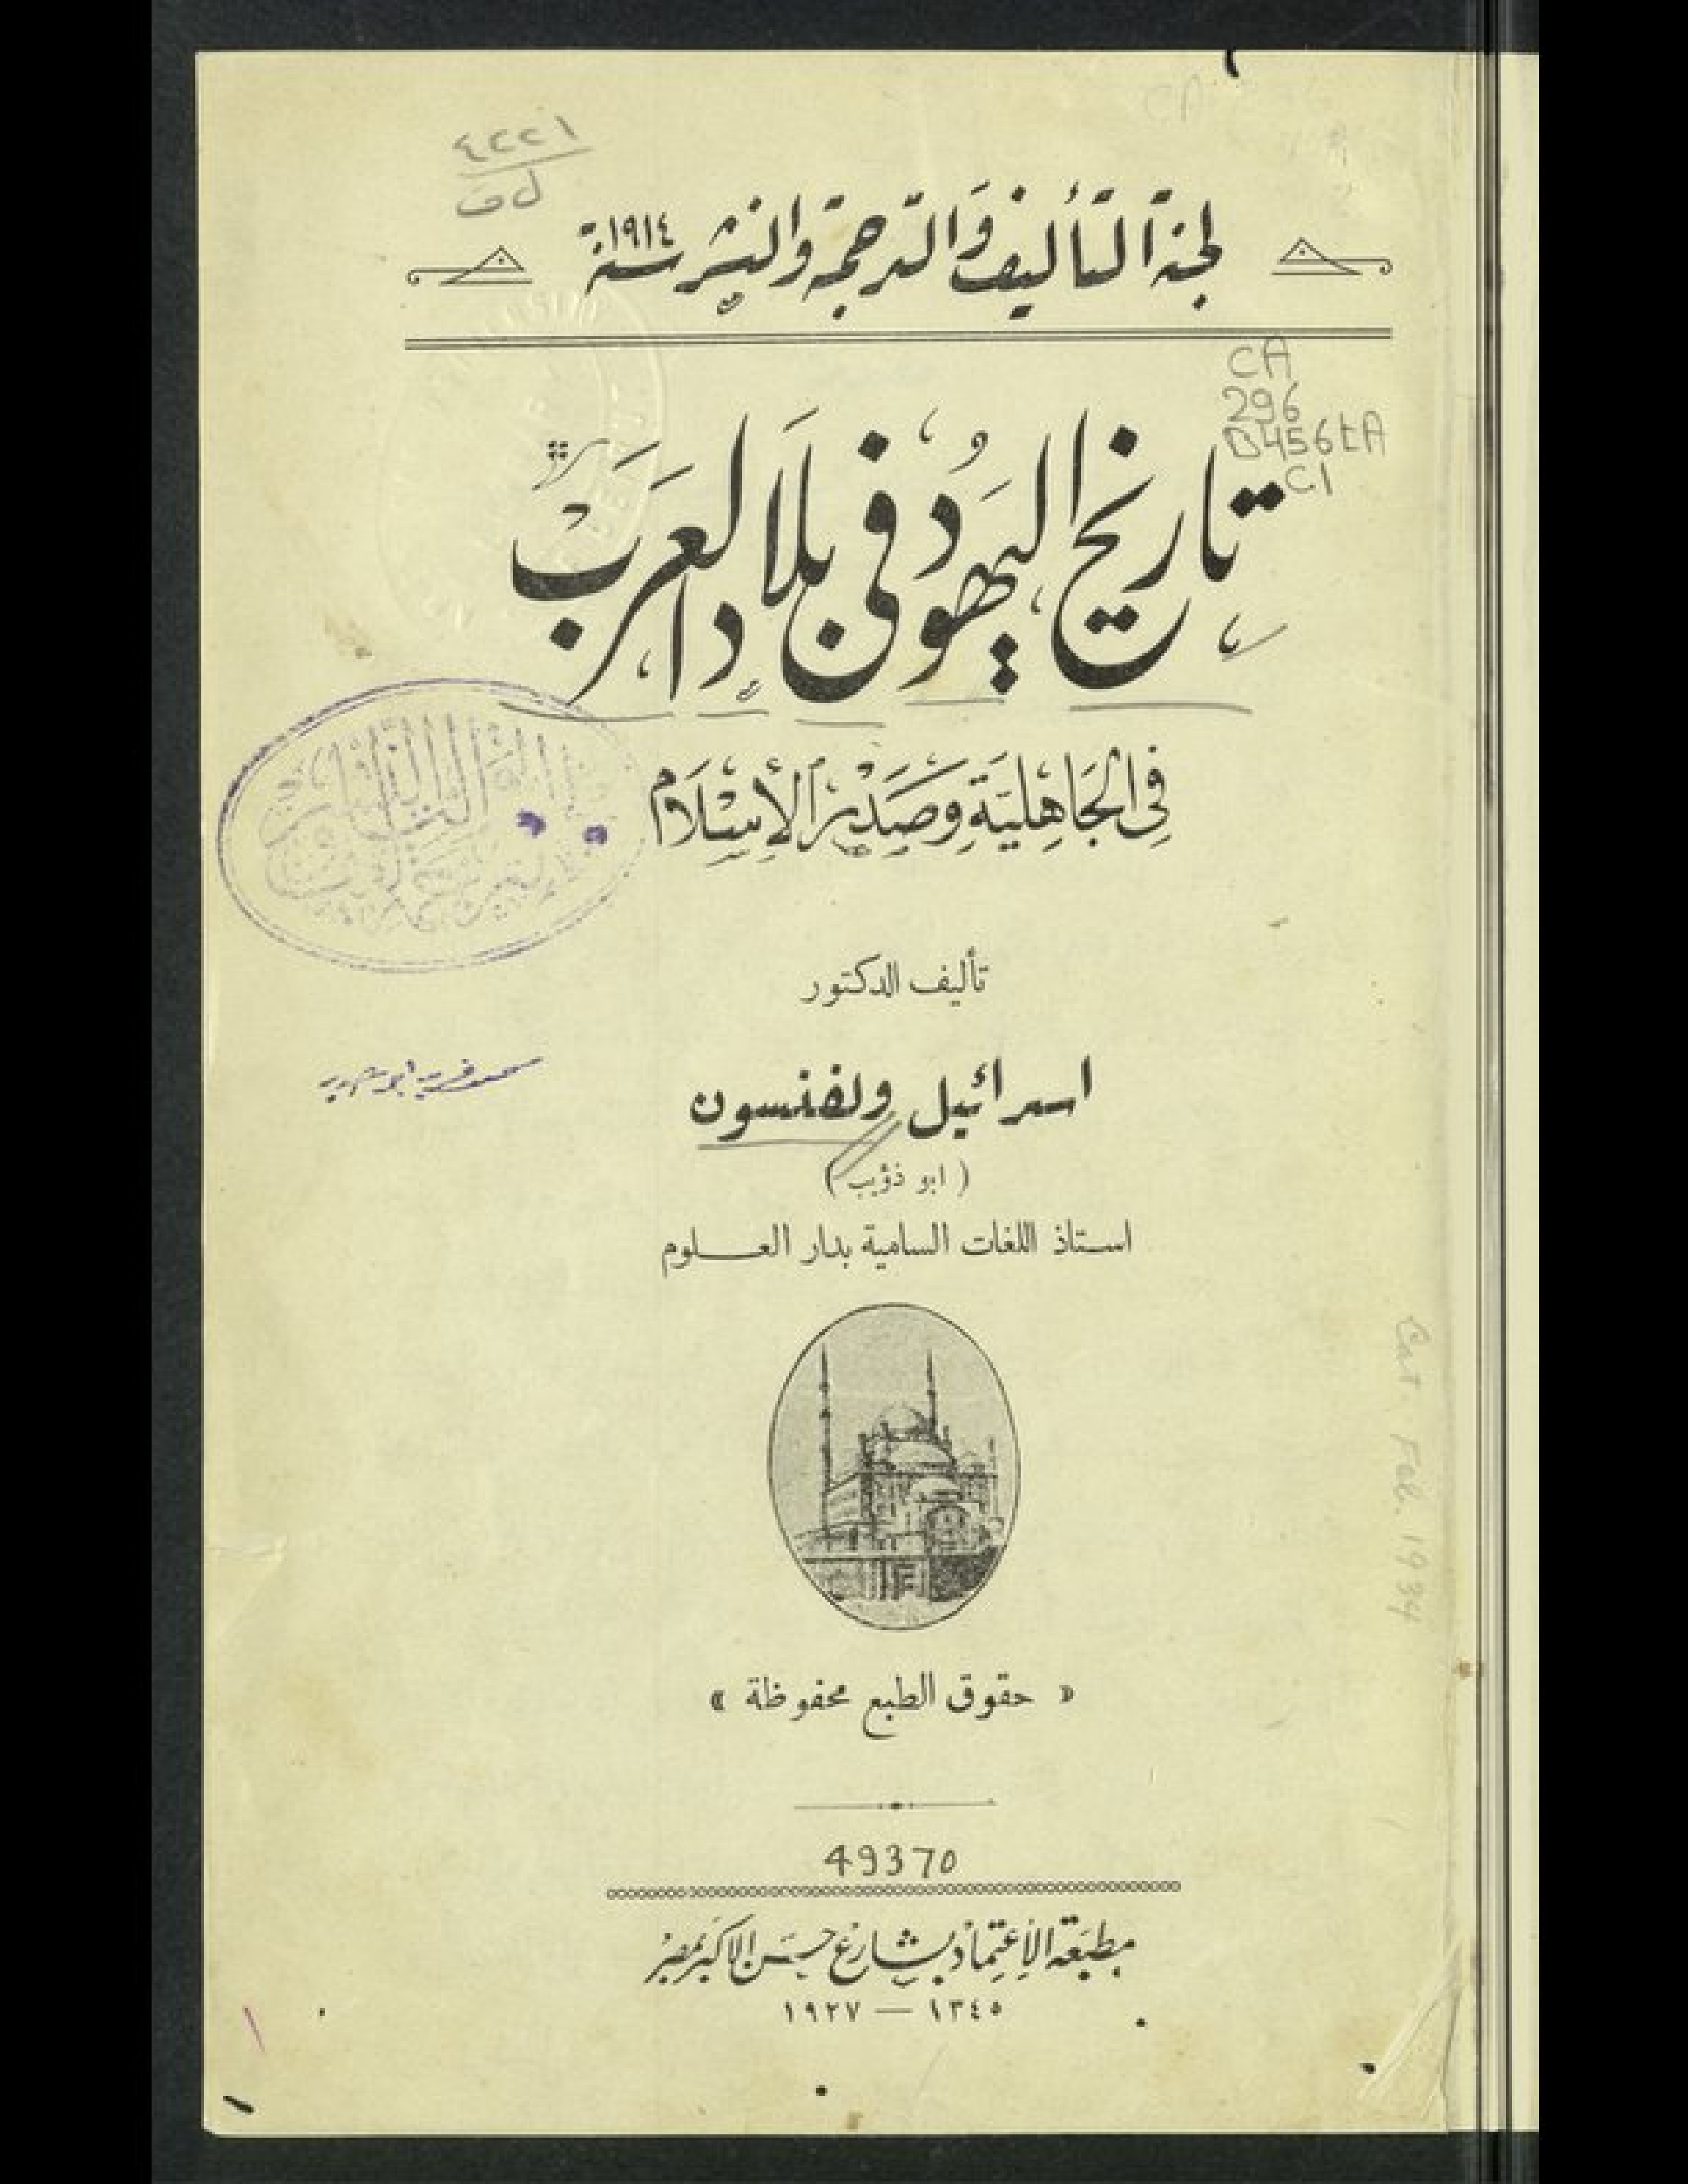 ٤٢٢١
لجنة التأليف والترجمة والنشر سنة ١٩١٤
CA
296
B456tA
C1
تاريخ اليهود في بلاد العرب
في الجاهلية وصدر الإسلام
تأليف الدكتور
اسرائيل ولفنسون
( ابو ذؤيب )
استاذ اللغات السامية بدار العـــلوم
Cat. Feb. 1934
« حقوق الطبع محفوظة »
49370
مطبعة الإعتماد بشارع حسن الاكبر بمصر
١٣٤٥ — ١٩٢٧